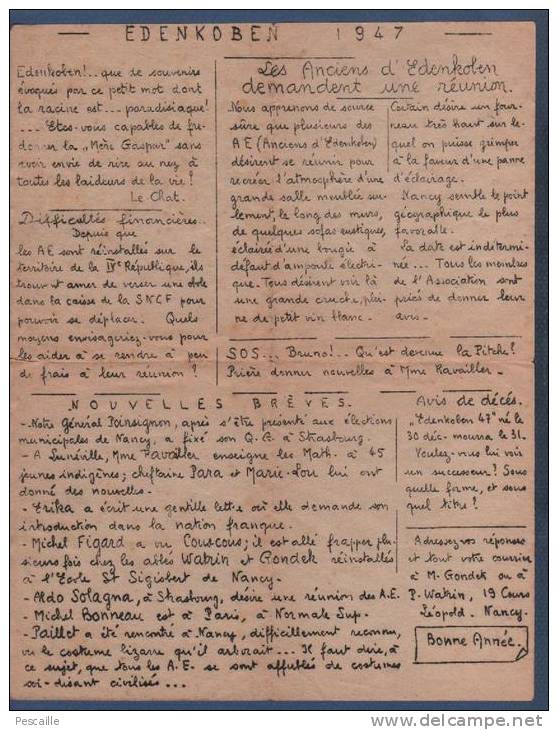 EDENKOBEN 1947
Edenkoben!.. que de souvenirs
évoqués par ce petit mot dont
la racine est... paradisiaque!
... Etes-vous capables de fre-
donner la "Mère Gaspar" sans
avoir envie de rire au nez à
toutes les laideurs de la vie!
Le Chat.
Difficultés financières..
Depuis que
les AE sont réinstallés sur le
territoire de la IVe République, ils
trouvent amer de verser une obole
dans la caisse de la SNCF pour
pouvoir se déplacer. Quels
moyens envisageriez-vous pour
les aider à se rendre à peu
de frais à leur réunion?
Les Anciens d'Edenkoben
demandent une réunion.
Nous apprenons de source
sûre que plusieurs des
AE (Anciens d'Edenkoben)
désirent se réunir pour
recréer l'atmosphère d'une
grande salle meublée seu-
lement, le long des murs,
de quelques sofas rustiques,
éclairée d'une bougie à
défaut d'ampoule électri-
que. Tous désirent voir là
une grande cruche, plei-
ne de petit vin blanc.
Certain désire un four-
neau très haut sur le-
quel on puisse grimper
à la faveur d'une panne
d'éclairage.
Nancy semble le point
géographique le plus
favorable.
La date est indétermi-
née... Tous les membres
de l'Association sont
priés de donner leur
avis.
SOS... Bruno!.. Qu'est devenue la Pitche?
Prière donner nouvelles à Mme Ravailler.
NOUVELLES BRÈVES.
- Notre Général Poirsignon, après s'être présenté aux élections
municipales de Nancy, a fixé son Q.G. à Strasbourg.
- A Lunéville, Mme Ravailler enseigne les Math. à 45
jeunes indigènes; cheftaine Para et Marie-Lou lui ont
donné des nouvelles.
- Erika a écrit une gentille lettre où elle demande son
introduction dans la nation franque.
- Michel Figard a vu Couscous; il est allé frapper plu-
sieurs fois chez les abbés Watrin et Gondek réinstallés
à l'Ecole St Sigisbert de Nancy.
- Aldo Solagna, à Strasbourg, désire une réunion des A.E.
- Michel Bonneau est à Paris, à Normale Sup.
- Paillet a été rencontré à Nancy, difficilement reconnu,
vu le costume bizarre qu'il arborait... Il faut dire, à
ce sujet, que tous les A.E. se sont affublés de costumes
soi-disant civilisés...
Avis de décès.
"Edenkoben 47" né le
30 déc. mourra le 31.
Voulez-vous lui voir
un successeur? Sous
quelle forme, et sous
quel titre?
Adressez vos réponses
et tout votre courrier
à M. Gondek ou à
P. Watrin, 19 Cours
Léopold. Nancy.
Bonne Année.
Pescaille
www.delcampe.net